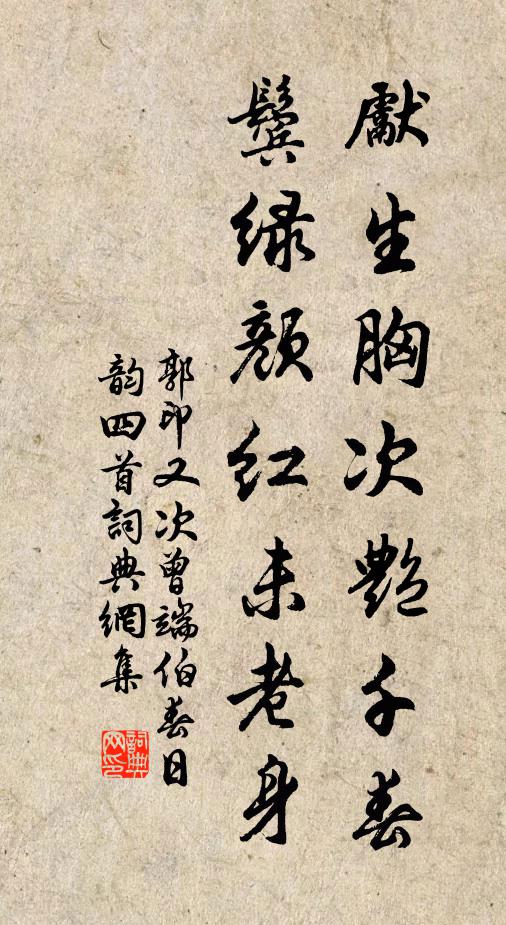 獻生胸次艷千春
鬓绿颜红未老身
郭印又次曾端伯春日
韵四首詞典網集
詞典网印